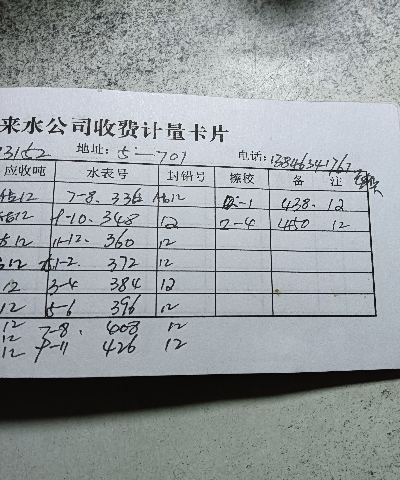 来水公司收费计量卡片
23152 地址：5-701 电话：13846341767
应收吨 水表号 封铅号 擦校 备 注
12 7-8. 336 12 12-1 438. 12
12 9-10. 348 12 2-4 450 12
12 11-12. 360 12
12 1-2 372 12
12 3-4 384 12
12 5-6 396 12
12 7-8. 408 12
12
12 9-11 426 12